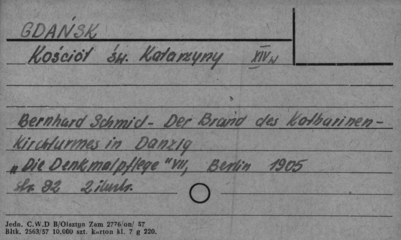 GDAŃSK
Kościół św. Katarzyny XIV w
Bernhard Schmid - Der Brand des Katharinen-
kirchturmes in Danzig
„Die Denkmalpflege" VII, Berlin 1905
str. 92 2 ilustr.
Jedn. C.W.D B/Olsztyn Zam 2776/on/ 57
Bltk. 2563/57 10.000 szt. karton kl. 7 g 220.